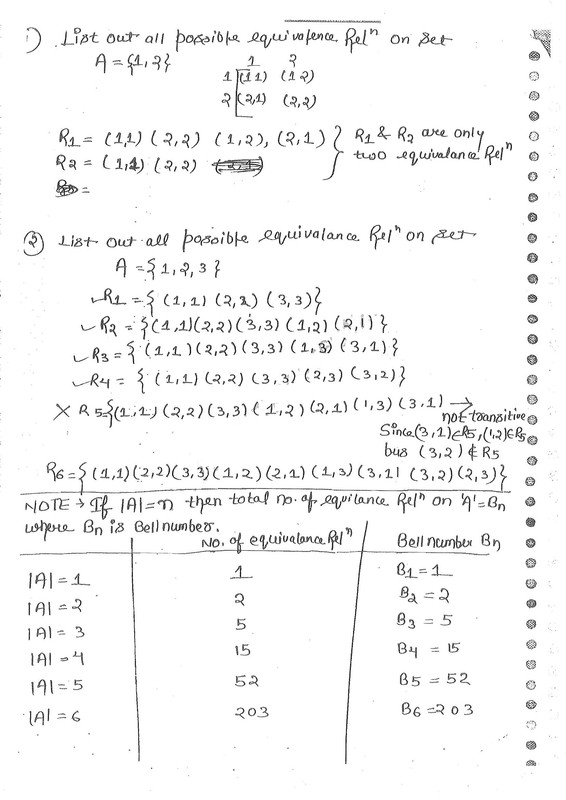 1) List out all possible equivalence Relⁿ on set
A = {1,2}
1 2
1 (1 1) (1 2)
2 (2,1) (2,2)
R1 = (1,1) (2,2) (1,2), (2,1) } R1 & R2 are only
R2 = (1,1) (2,2) } two equivalance Relⁿ
=
② List out all possible equivalance Relⁿ on set
A = {1,2,3}
✓R1 = { (1,1) (2,2) (3,3)}
✓R2 = {(1,1)(2,2)(3,3) (1,2) (2,1)}
✓R3 = { (1,1) (2,2) (3,3) (1,3) (3,1)}
✓R4 = { (1,1) (2,2) (3,3) (2,3) (3,2)}
X R5{(1,1) (2,2) (3,3) (1,2) (2,1) (1,3) (3,1) → not transitive
Since (3,1)∈R5, (1,2)∈R5
bus (3,2) ∉ R5
R6 = {(1,1)(2,2)(3,3)(1,2)(2,1)(1,3)(3,1) (3,2)(2,3)}
NOTE → If |A|=n then total no. of equilance Relⁿ on 'A' = Bn
where Bn is Bell number.
No. of equivalance Relⁿ Bell number Bn
|A| = 1 1 B1 = 1
|A| = 2 2 B2 = 2
|A| = 3 5 B3 = 5
|A| = 4 15 B4 = 15
|A| = 5 52 B5 = 52
|A| = 6 203 B6 = 203